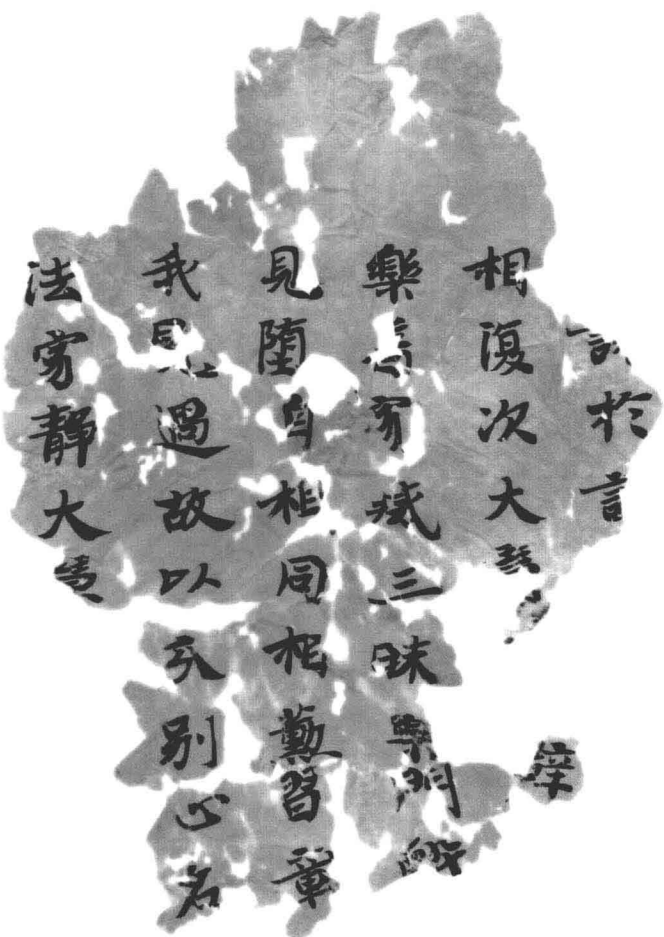 於言
相復次大慧
樂寂滅三昧樂門
見墮自相同相薰習章
我見過故以分別心名
法寂靜大慧